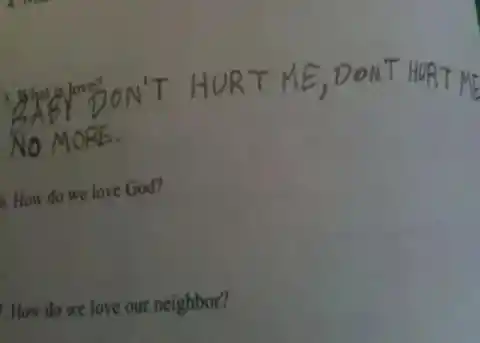 What is love?
BABY DON'T HURT ME, DONT HURT ME
NO MORE.
How do we love God?
How do we love our neighbor?